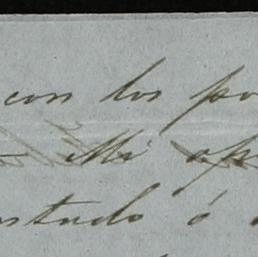 con los po
Mi op
stado ó